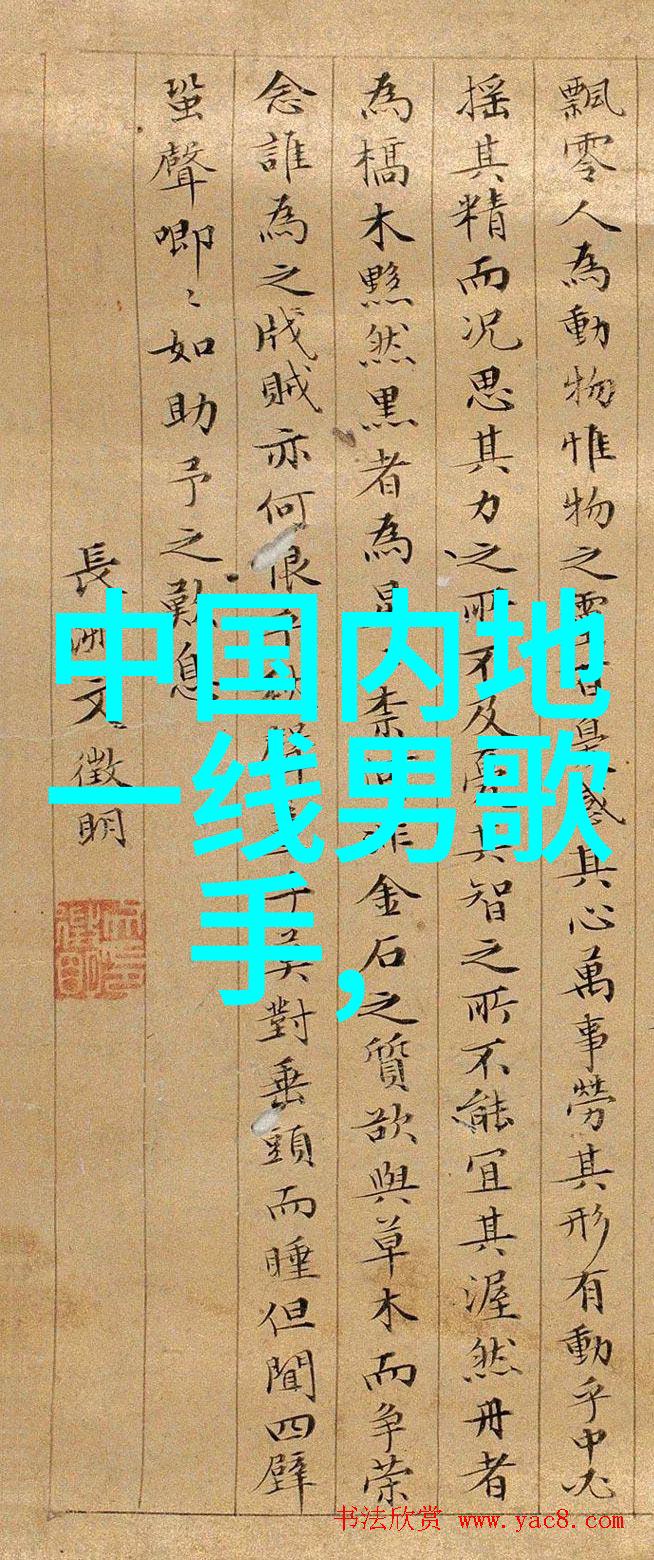 飄零人為動物惟物之靈百憂感其心萬事勞其形有動乎中必
搖其精而況思其力之所不及憂其智之所不能宜其渥然丹者
為槁木黟然黒者為星 柰 非金石之質欲與草木而争榮
念誰為之戕賊亦何恨乎秋聲 子莫對垂頭而睡但聞四壁
蛩聲唧〻如助予之歎息
長洲文徵明
中国内地
一线男歌
手,
书法欣赏 www.yac8.com